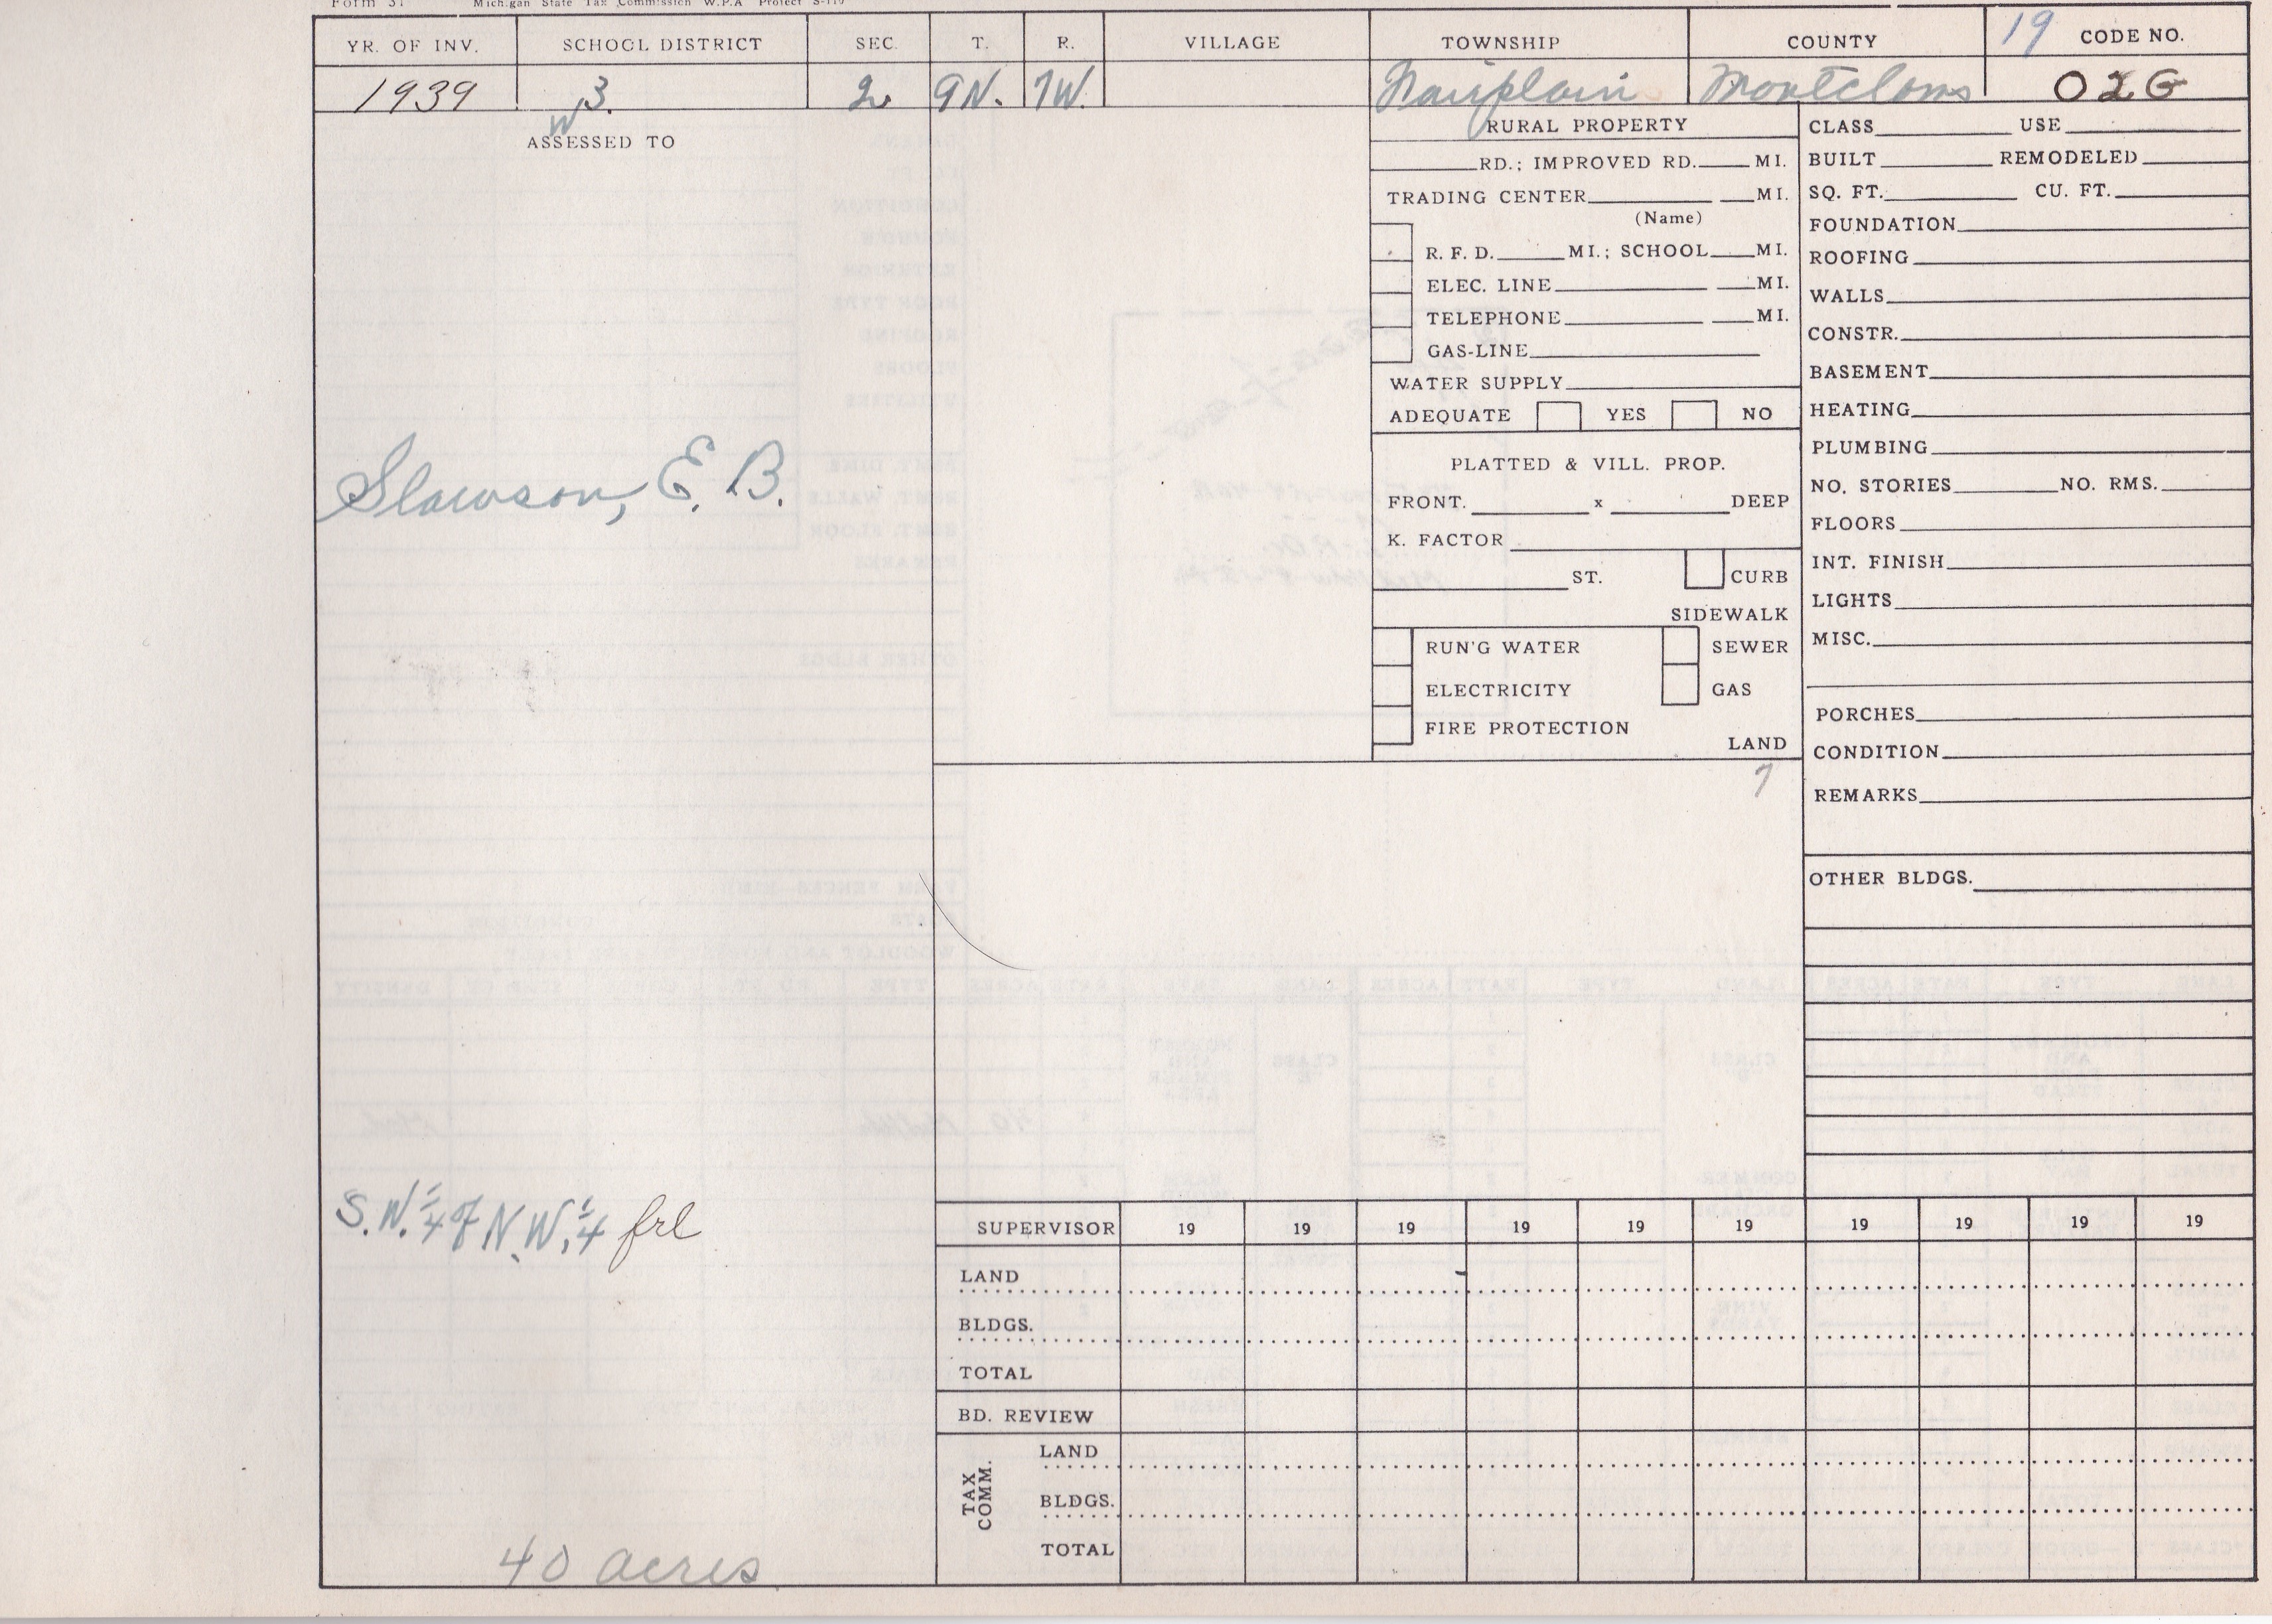 Form 31 Michigan State Tax Commission W.P.A Project S-119
YR. OF INV. SCHOOL DISTRICT SEC. T. R. VILLAGE TOWNSHIP COUNTY 19 CODE NO.
1939 3. 2 9N. 7W. Fairplain Montclam O2G
W
ASSESSED TO
Slawson, E. B.
S.W. 1/4 of N.W. 1/4 frl
40 acres
RURAL PROPERTY
RD.; IMPROVED RD. MI.
TRADING CENTER MI.
(Name)
R. F. D. MI.; SCHOOL MI.
ELEC. LINE MI.
TELEPHONE MI.
GAS-LINE
WATER SUPPLY
ADEQUATE YES NO
PLATTED & VILL. PROP.
FRONT. x DEEP
K. FACTOR
ST. CURB
SIDEWALK
RUN'G WATER SEWER
ELECTRICITY GAS
FIRE PROTECTION
LAND
7
CLASS USE
BUILT REMODELED
SQ. FT. CU. FT.
FOUNDATION
ROOFING
WALLS
CONSTR.
BASEMENT
HEATING
PLUMBING
NO. STORIES NO. RMS.
FLOORS
INT. FINISH
LIGHTS
MISC.
PORCHES
CONDITION
REMARKS
OTHER BLDGS.
SUPERVISOR 19 19 19 19 19 19 19 19 19 19
LAND
BLDGS.
TOTAL
BD. REVIEW
TAX COMM.
LAND
BLDGS.
TOTAL